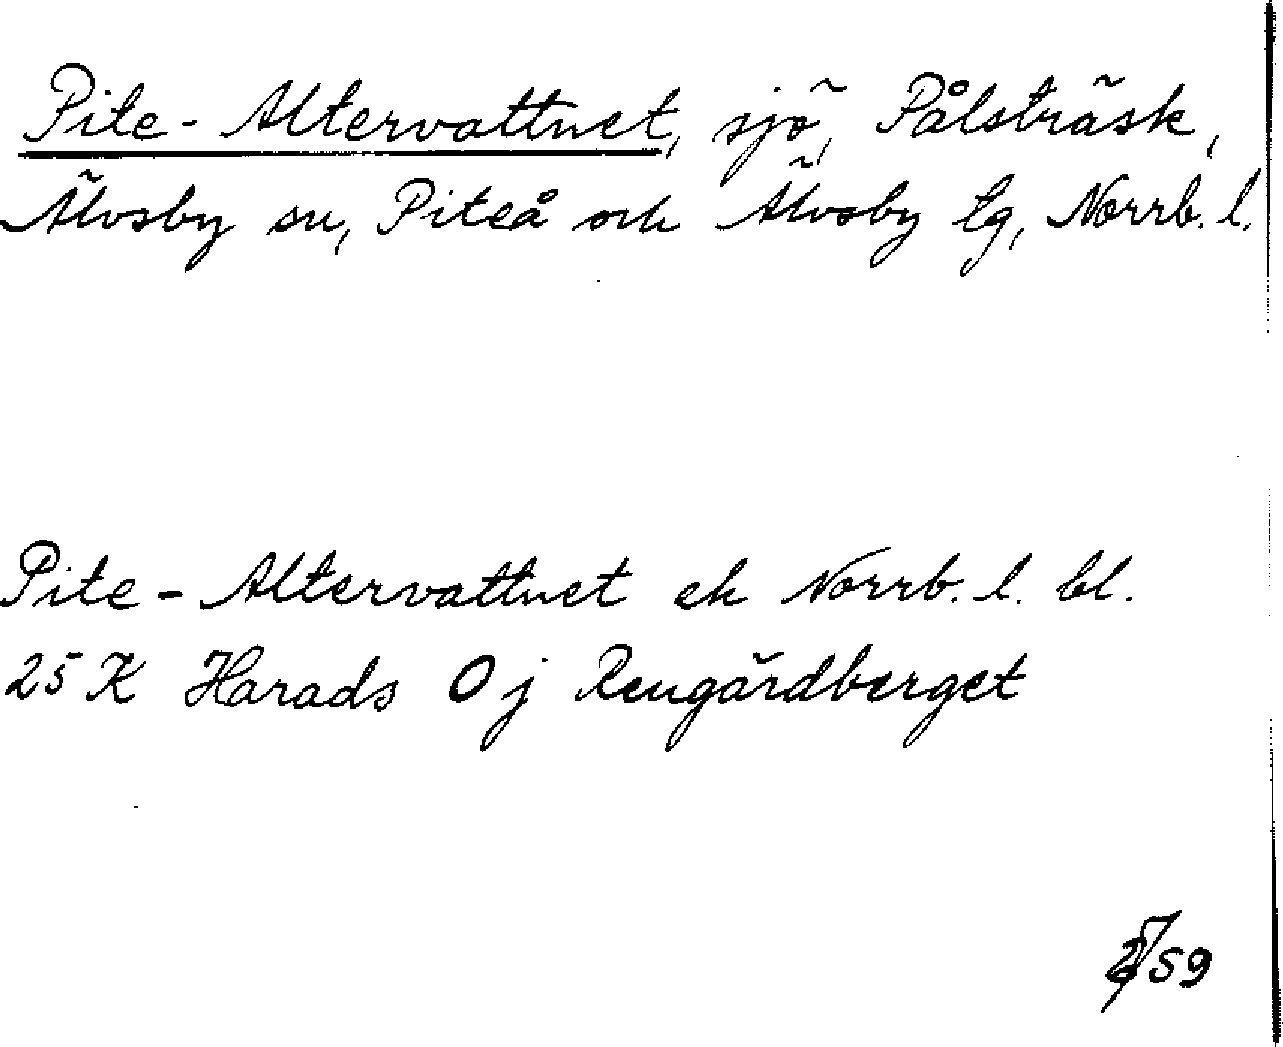 Pite-Altervattnet, sjö, Pålsträsk,
Älvsby sn, Piteå och Älvsby tg, Norrb. l.
Pite-Altervattnet ek Norrb. l. bl.
25 K Harads 0 j Rengårdberget
59